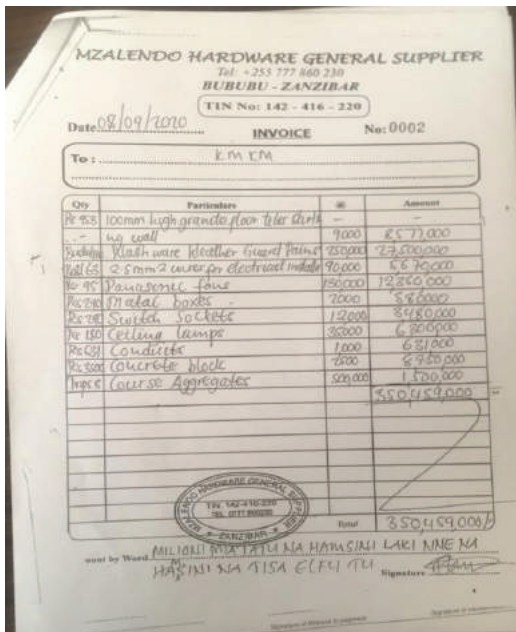 MZALENDO HARDWARE GENERAL SUPPLIER
Tel: +255 777 860 230
BUBUBU - ZANZIBAR
TIN No: 142 - 416 - 220
Date 08/09/2020 INVOICE No: 0002
To : KMKM
Qty Particulars @ Amount
Pc 953 100mm high granite floor tiles - -
ng wall 9000 8577,000
Wash ware Weather Guard Paint 250,000 27,500,000
2.5mm2 wires for electrical 90,000 5,670,000
95 Panasonic fans 130,000 12,350,000
Pcs 290 Matal boxes 2000 580,000
Pcs 290 Switch Sockets 12,000 3,480,000
Pc 180 Ceiling Lamps 35000 6,300,000
Pcs 631 Conduits 1,000 631,000
Pcs 3500 Concrete block 2500 8,750,000
Course Aggregates 500,000 1,500,000
350,459,000
MZALENDO HARDWARE GENERAL SUPPLIER
TIN: 142-416-220
TEL: 0777 860230
ZANZIBAR
Total 350,459,000/=
ount by Word MILIONI MIA TATU NA HAMSINI LAKI NNE NA
HAMSINI NA TISA ELFU TU Signature